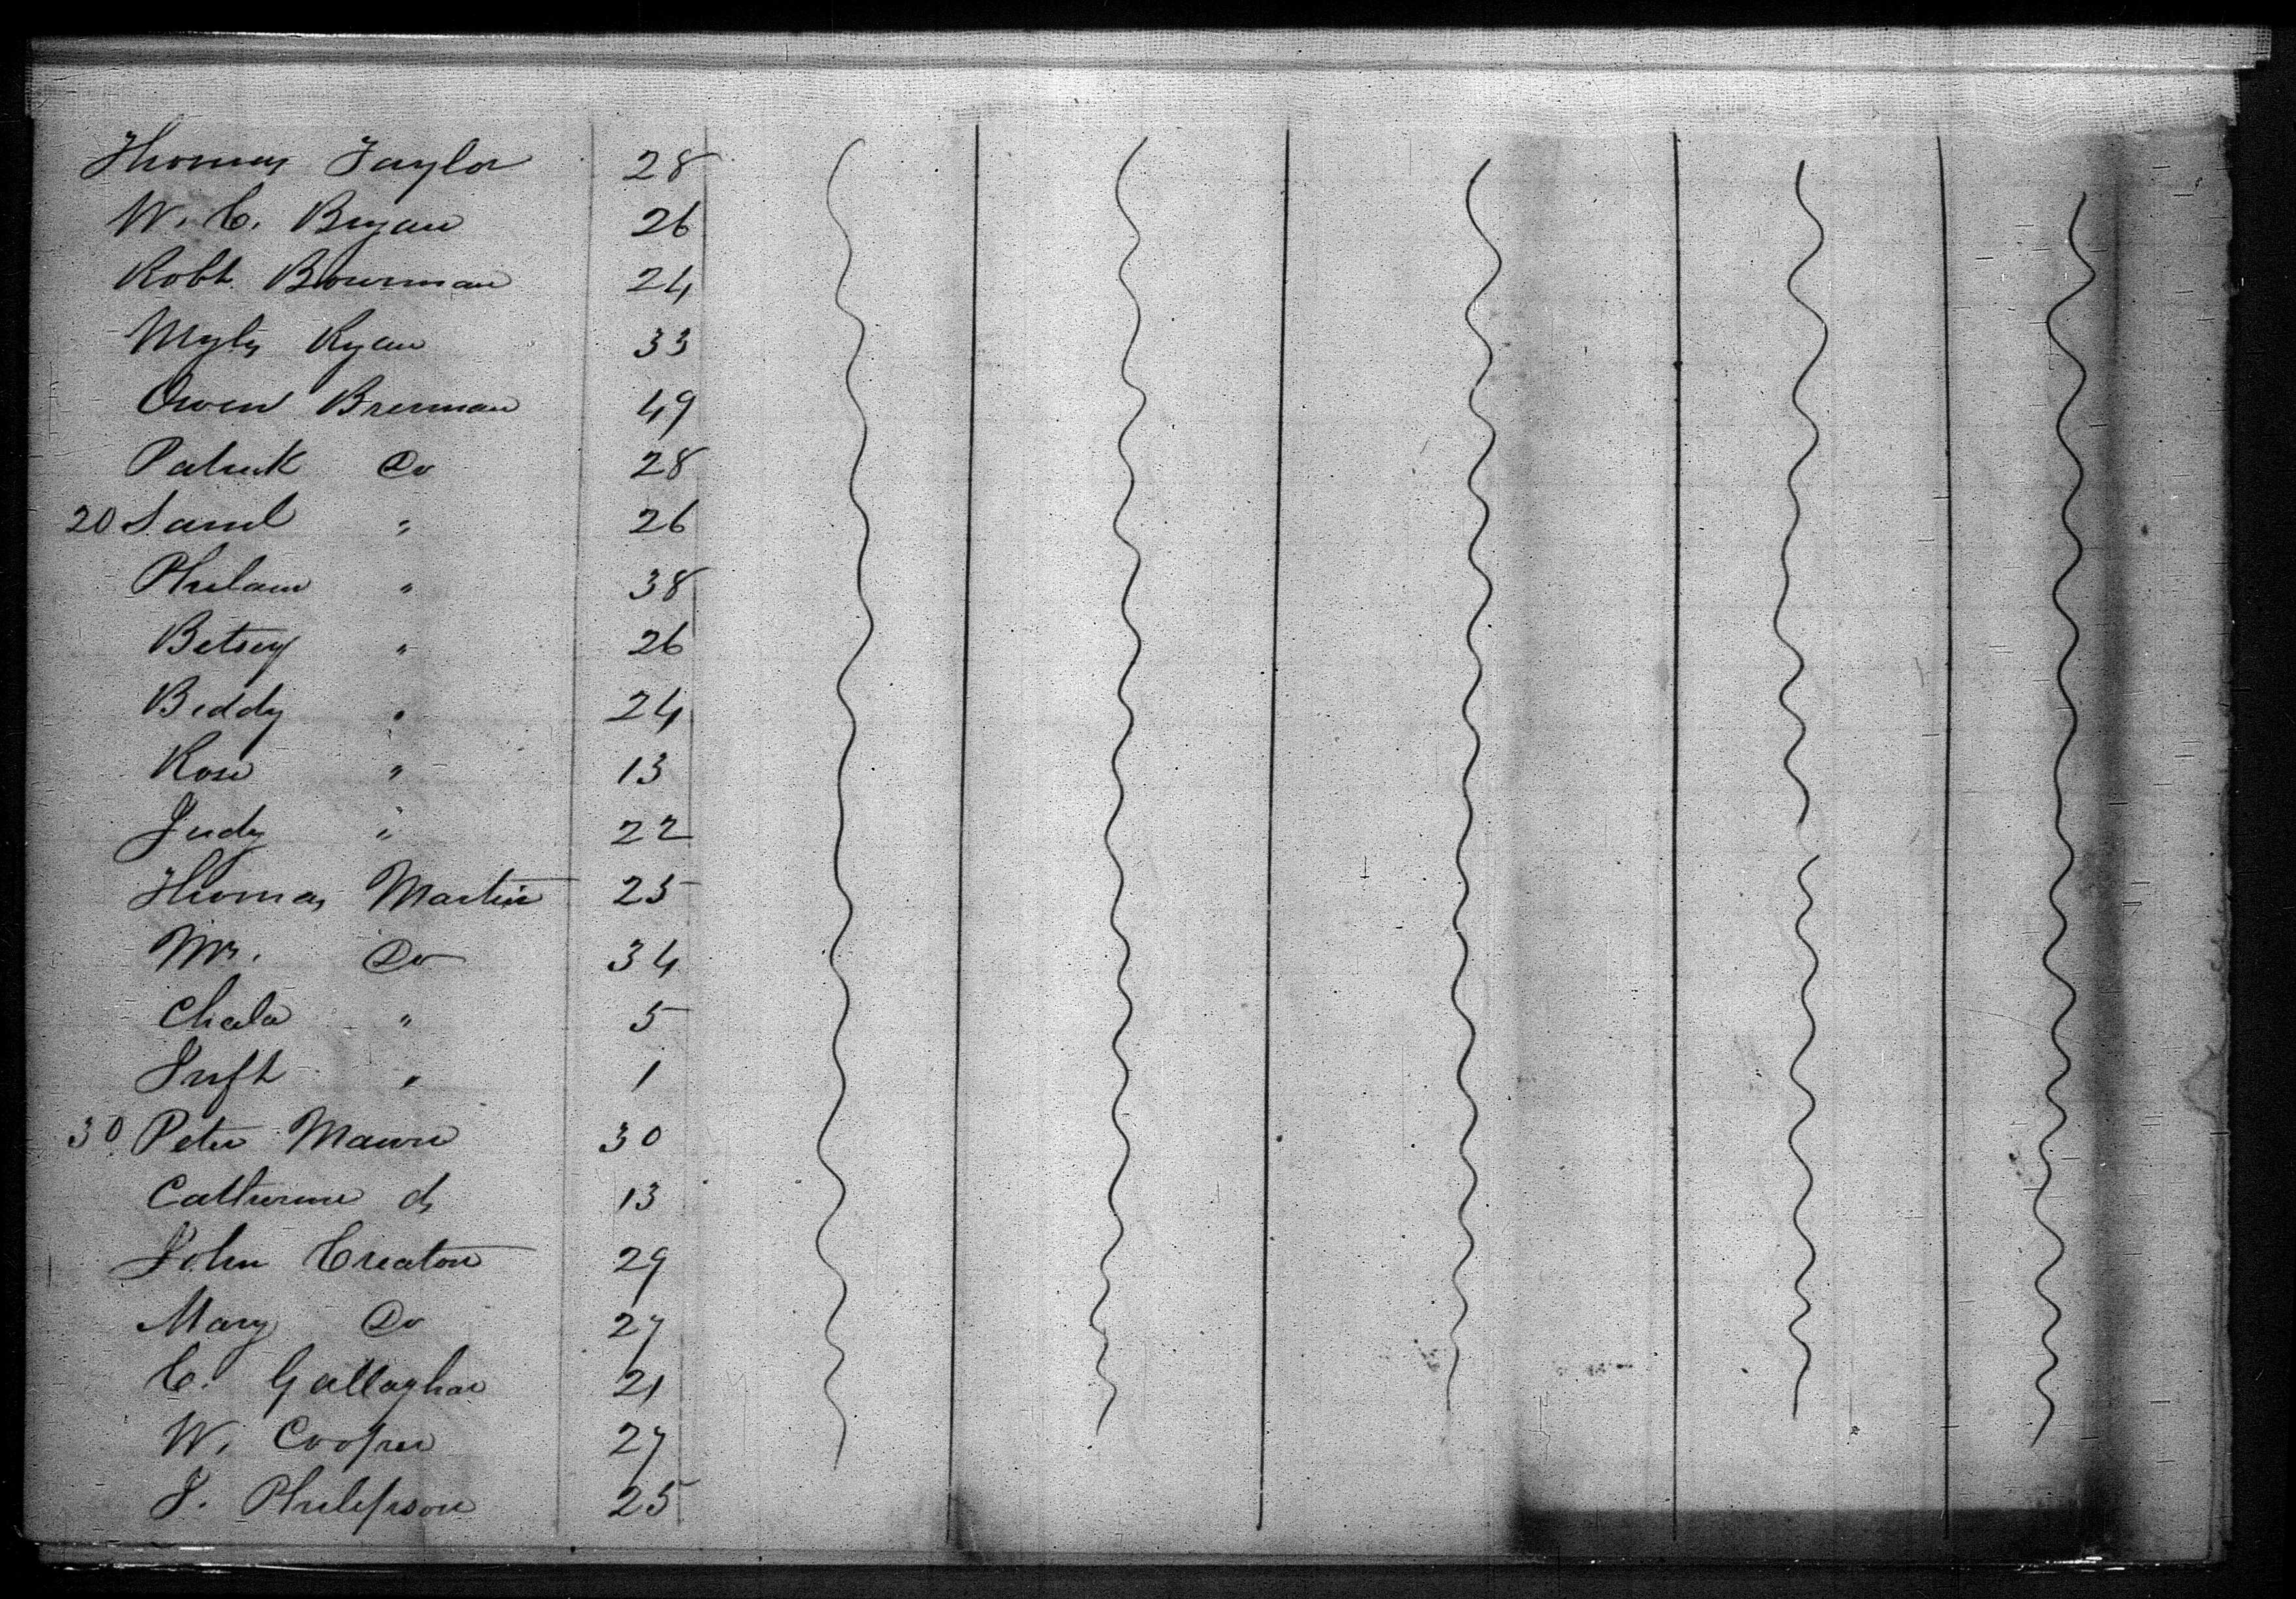 Thomas Taylor 28
W. C. Bryan 26
Robt. Bowman 24
Myles Ryan 33
Owen Brennan 49
Patrick Do 28
20 Saml " 26
Phelam " 38
Betsey " 26
Beddy " 24
Rose " 13
Judy " 22
Thomas Martin 25
Mr. Do 34
Chala " 5
Inft " 1
30 Peter Mawn 30
Catherine do 13
John Creaton 29
Mary Do 27
C. Gallaghar 21
W. Cooper 27
J. Philipson 25